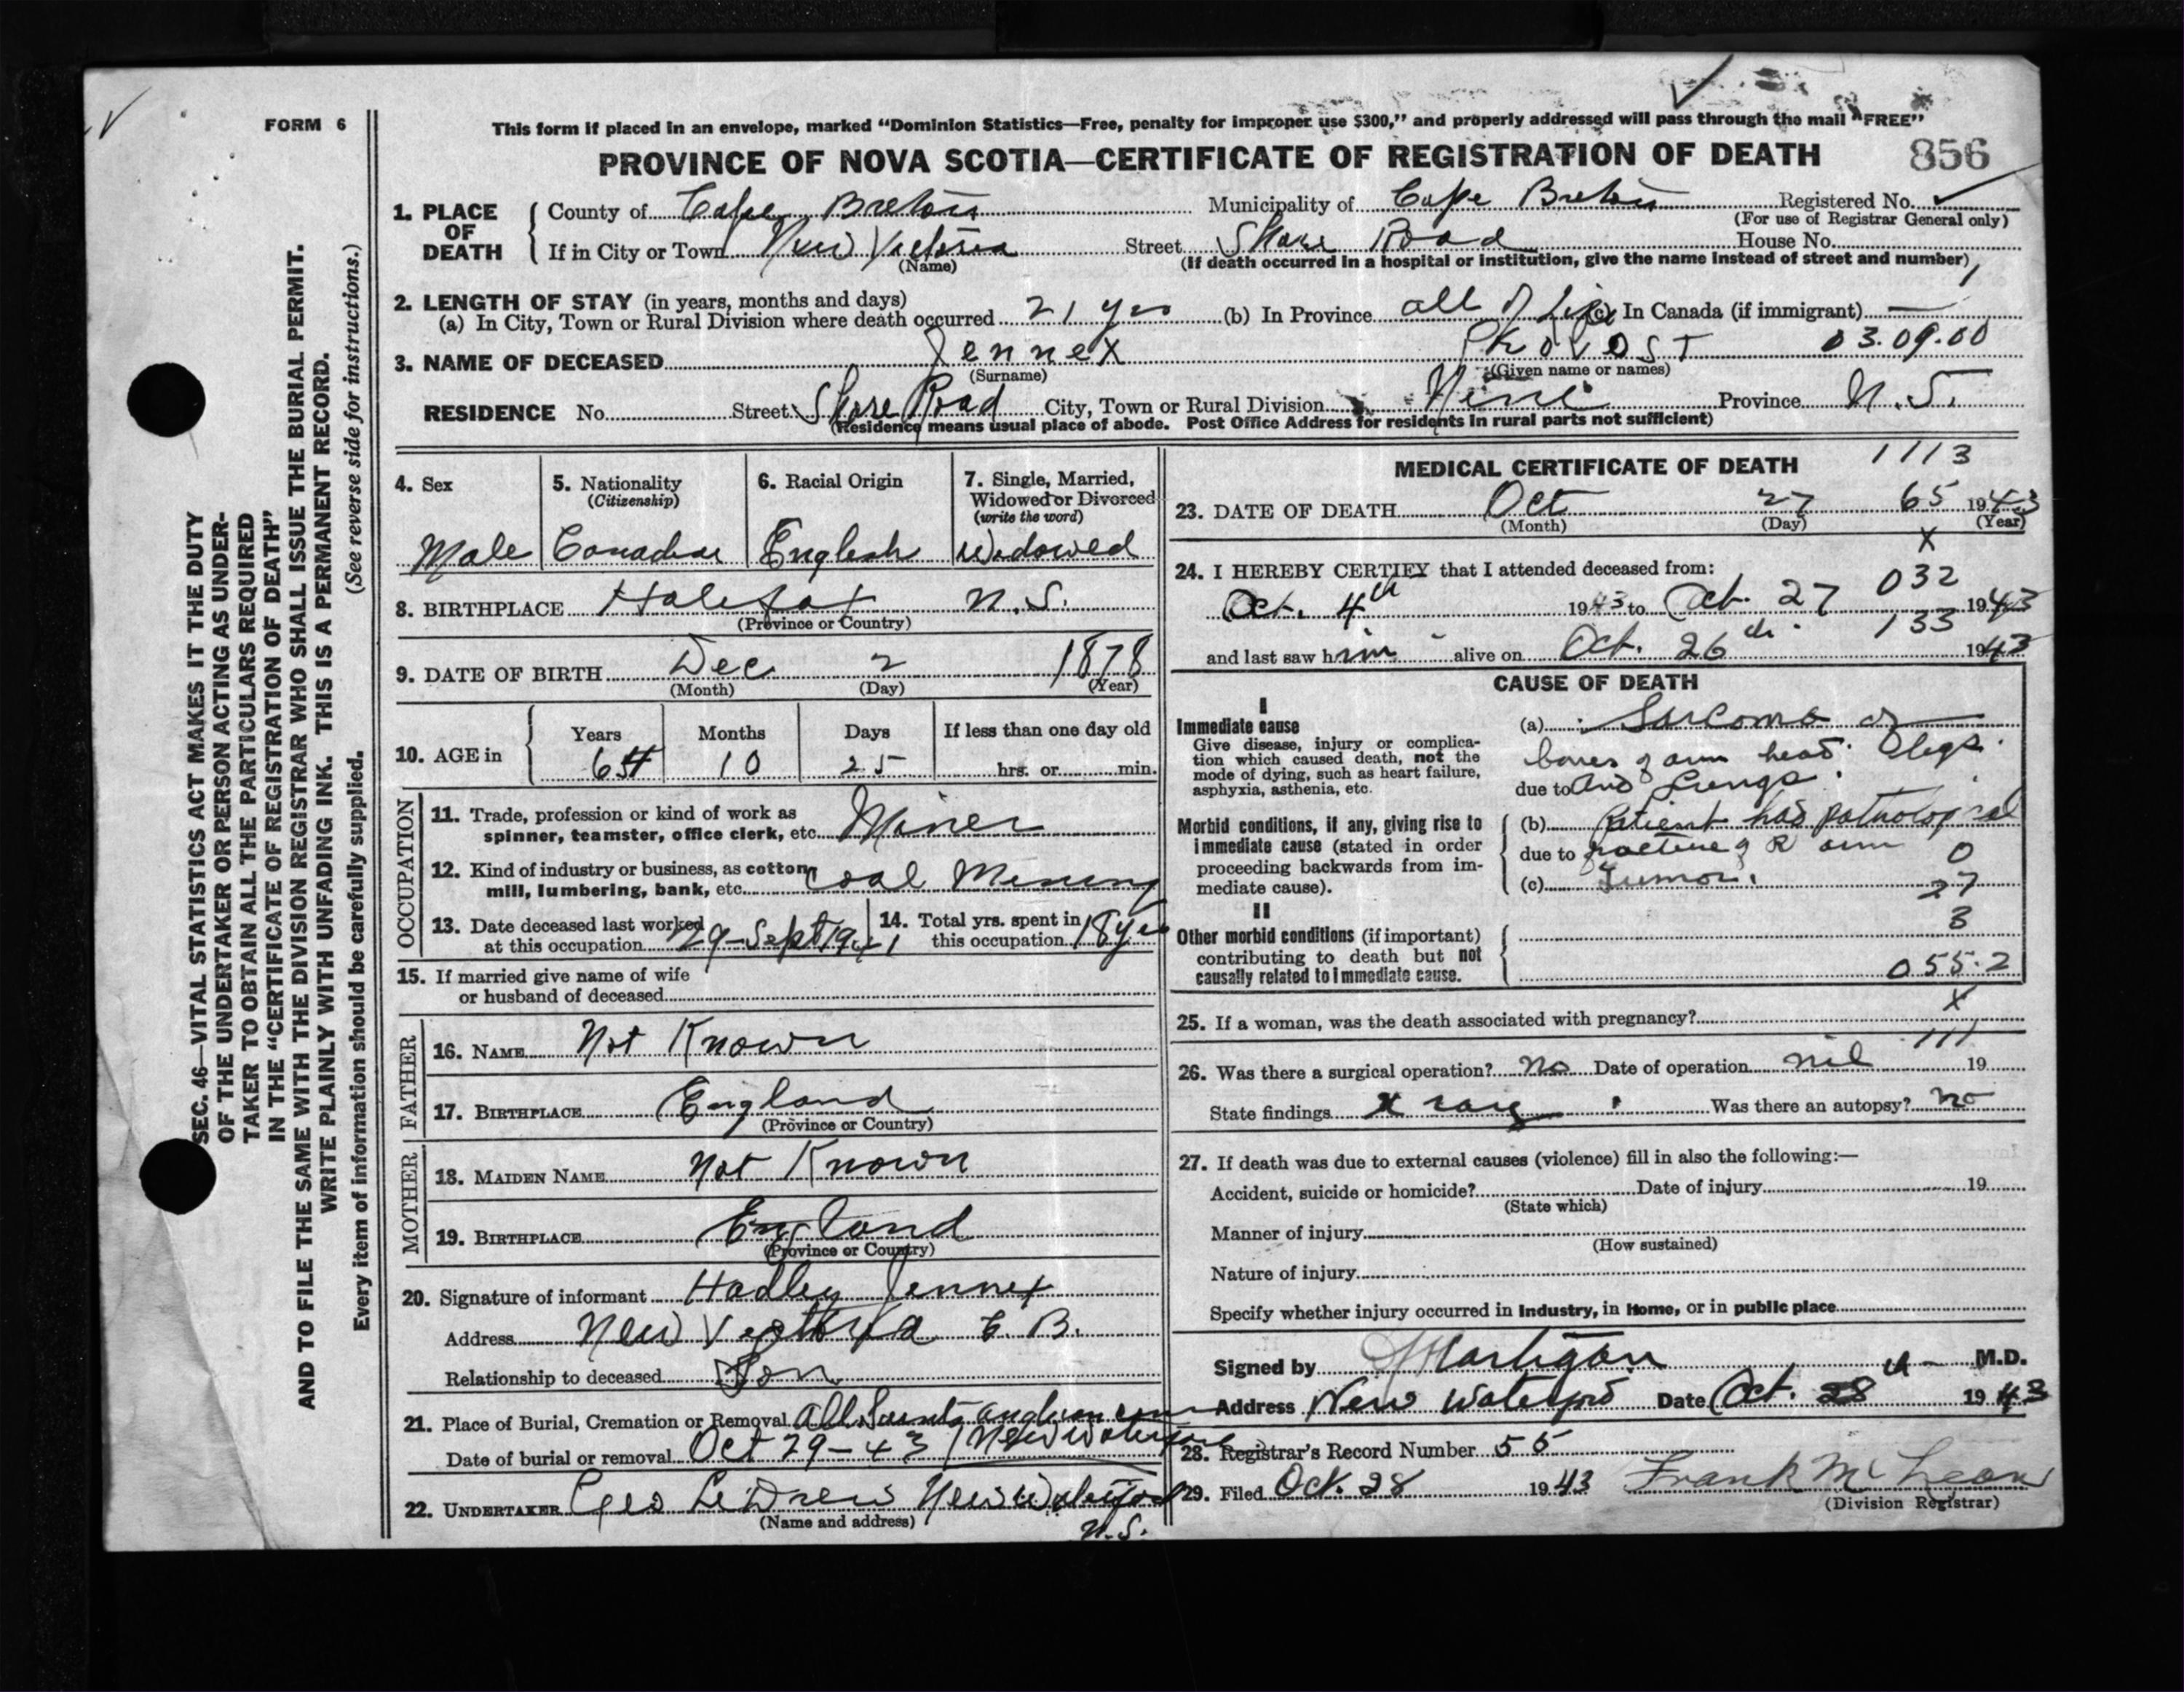 FORM 6
This form if placed in an envelope, marked “Dominion Statistics—Free, penalty for improper use $300,” and properly addressed will pass through the mail “FREE”
PROVINCE OF NOVA SCOTIA—CERTIFICATE OF REGISTRATION OF DEATH 856
1. PLACE OF DEATH { County of Cape Breton Municipality of Cape Breton Registered No.
(For use of Registrar General only)
If in City or Town New Victoria Street Shore Road House No.
(Name) (If death occurred in a hospital or institution, give the name instead of street and number)
2. LENGTH OF STAY (in years, months and days)
(a) In City, Town or Rural Division where death occurred 21 yrs (b) In Province all of Life (c) In Canada (if immigrant) —
3. NAME OF DECEASED Jennex Provost 03.09.00
(Surname) (Given name or names)
RESIDENCE No. Street Shore Road City, Town or Rural Division Province N.S.
(Residence means usual place of abode. Post Office Address for residents in rural parts not sufficient)
SEC. 46—VITAL STATISTICS ACT MAKES IT THE DUTY
OF THE UNDERTAKER OR PERSON ACTING AS UNDER-
TAKER TO OBTAIN ALL THE PARTICULARS REQUIRED
IN THE “CERTIFICATE OF REGISTRATION OF DEATH”
AND TO FILE THE SAME WITH THE DIVISION REGISTRAR WHO SHALL ISSUE THE BURIAL PERMIT.
WRITE PLAINLY WITH UNFADING INK. THIS IS A PERMANENT RECORD.
Every item of information should be carefully supplied. (See reverse side for instructions.)
4. Sex 5. Nationality 6. Racial Origin 7. Single, Married,
(Citizenship) Widowed or Divorced
(write the word)
Male Canadian English Widowed
8. BIRTHPLACE Halifax N.S.
(Province or Country)
9. DATE OF BIRTH Dec 2 1878
(Month) (Day) (Year)
10. AGE in { Years Months Days If less than one day old
64 10 25 hrs. or min.
OCCUPATION
11. Trade, profession or kind of work as
spinner, teamster, office clerk, etc. Miner
12. Kind of industry or business, as cotton
mill, lumbering, bank, etc. Coal Mining
13. Date deceased last worked
at this occupation 29-Sept 1941
14. Total yrs. spent in
this occupation 18 yrs
15. If married give name of wife
or husband of deceased
FATHER
16. NAME Not Known
17. BIRTHPLACE England
(Province or Country)
MOTHER
18. MAIDEN NAME Not Known
19. BIRTHPLACE England
(Province or Country)
20. Signature of informant Hadley Jennex
Address New Victoria C. B.
Relationship to deceased Son
21. Place of Burial, Cremation or Removal All Saints Anglican cem
Date of burial or removal Oct 29-43 New Waterford
22. UNDERTAKER Geo LeDrew New Waterford
(Name and address) N.S.
MEDICAL CERTIFICATE OF DEATH 1113
23. DATE OF DEATH Oct 27 65 1943
(Month) (Day) (Year)
X
24. I HEREBY CERTIFY that I attended deceased from:
032
Oct. 4th 1943 to Oct. 27 1943
133
and last saw him alive on Oct. 26th 1943
CAUSE OF DEATH
I
Immediate cause (a) Sarcoma of
Give disease, injury or complica-
tion which caused death, not the
mode of dying, such as heart failure,
asphyxia, asthenia, etc.
bones of arm head legs
due to And Lungs.
Morbid conditions, if any, giving rise to
immediate cause (stated in order
proceeding backwards from im-
mediate cause).
(b) Patient had pathological
due to fracture of R arm 0
(c) Tumor. 27
II
3
Other morbid conditions (if important)
contributing to death but not
causally related to immediate cause.
055.2
X
25. If a woman, was the death associated with pregnancy?
111
26. Was there a surgical operation? No Date of operation nil 19
State findings x ray Was there an autopsy? no
27. If death was due to external causes (violence) fill in also the following:—
Accident, suicide or homicide? Date of injury 19
(State which)
Manner of injury
(How sustained)
Nature of injury
Specify whether injury occurred in Industry, in Home, or in public place
Signed by Hartigan M.D.
Address New Waterford Date Oct. 28th 1943
28. Registrar's Record Number 55
29. Filed Oct. 28 1943 Frank McLean
(Division Registrar)